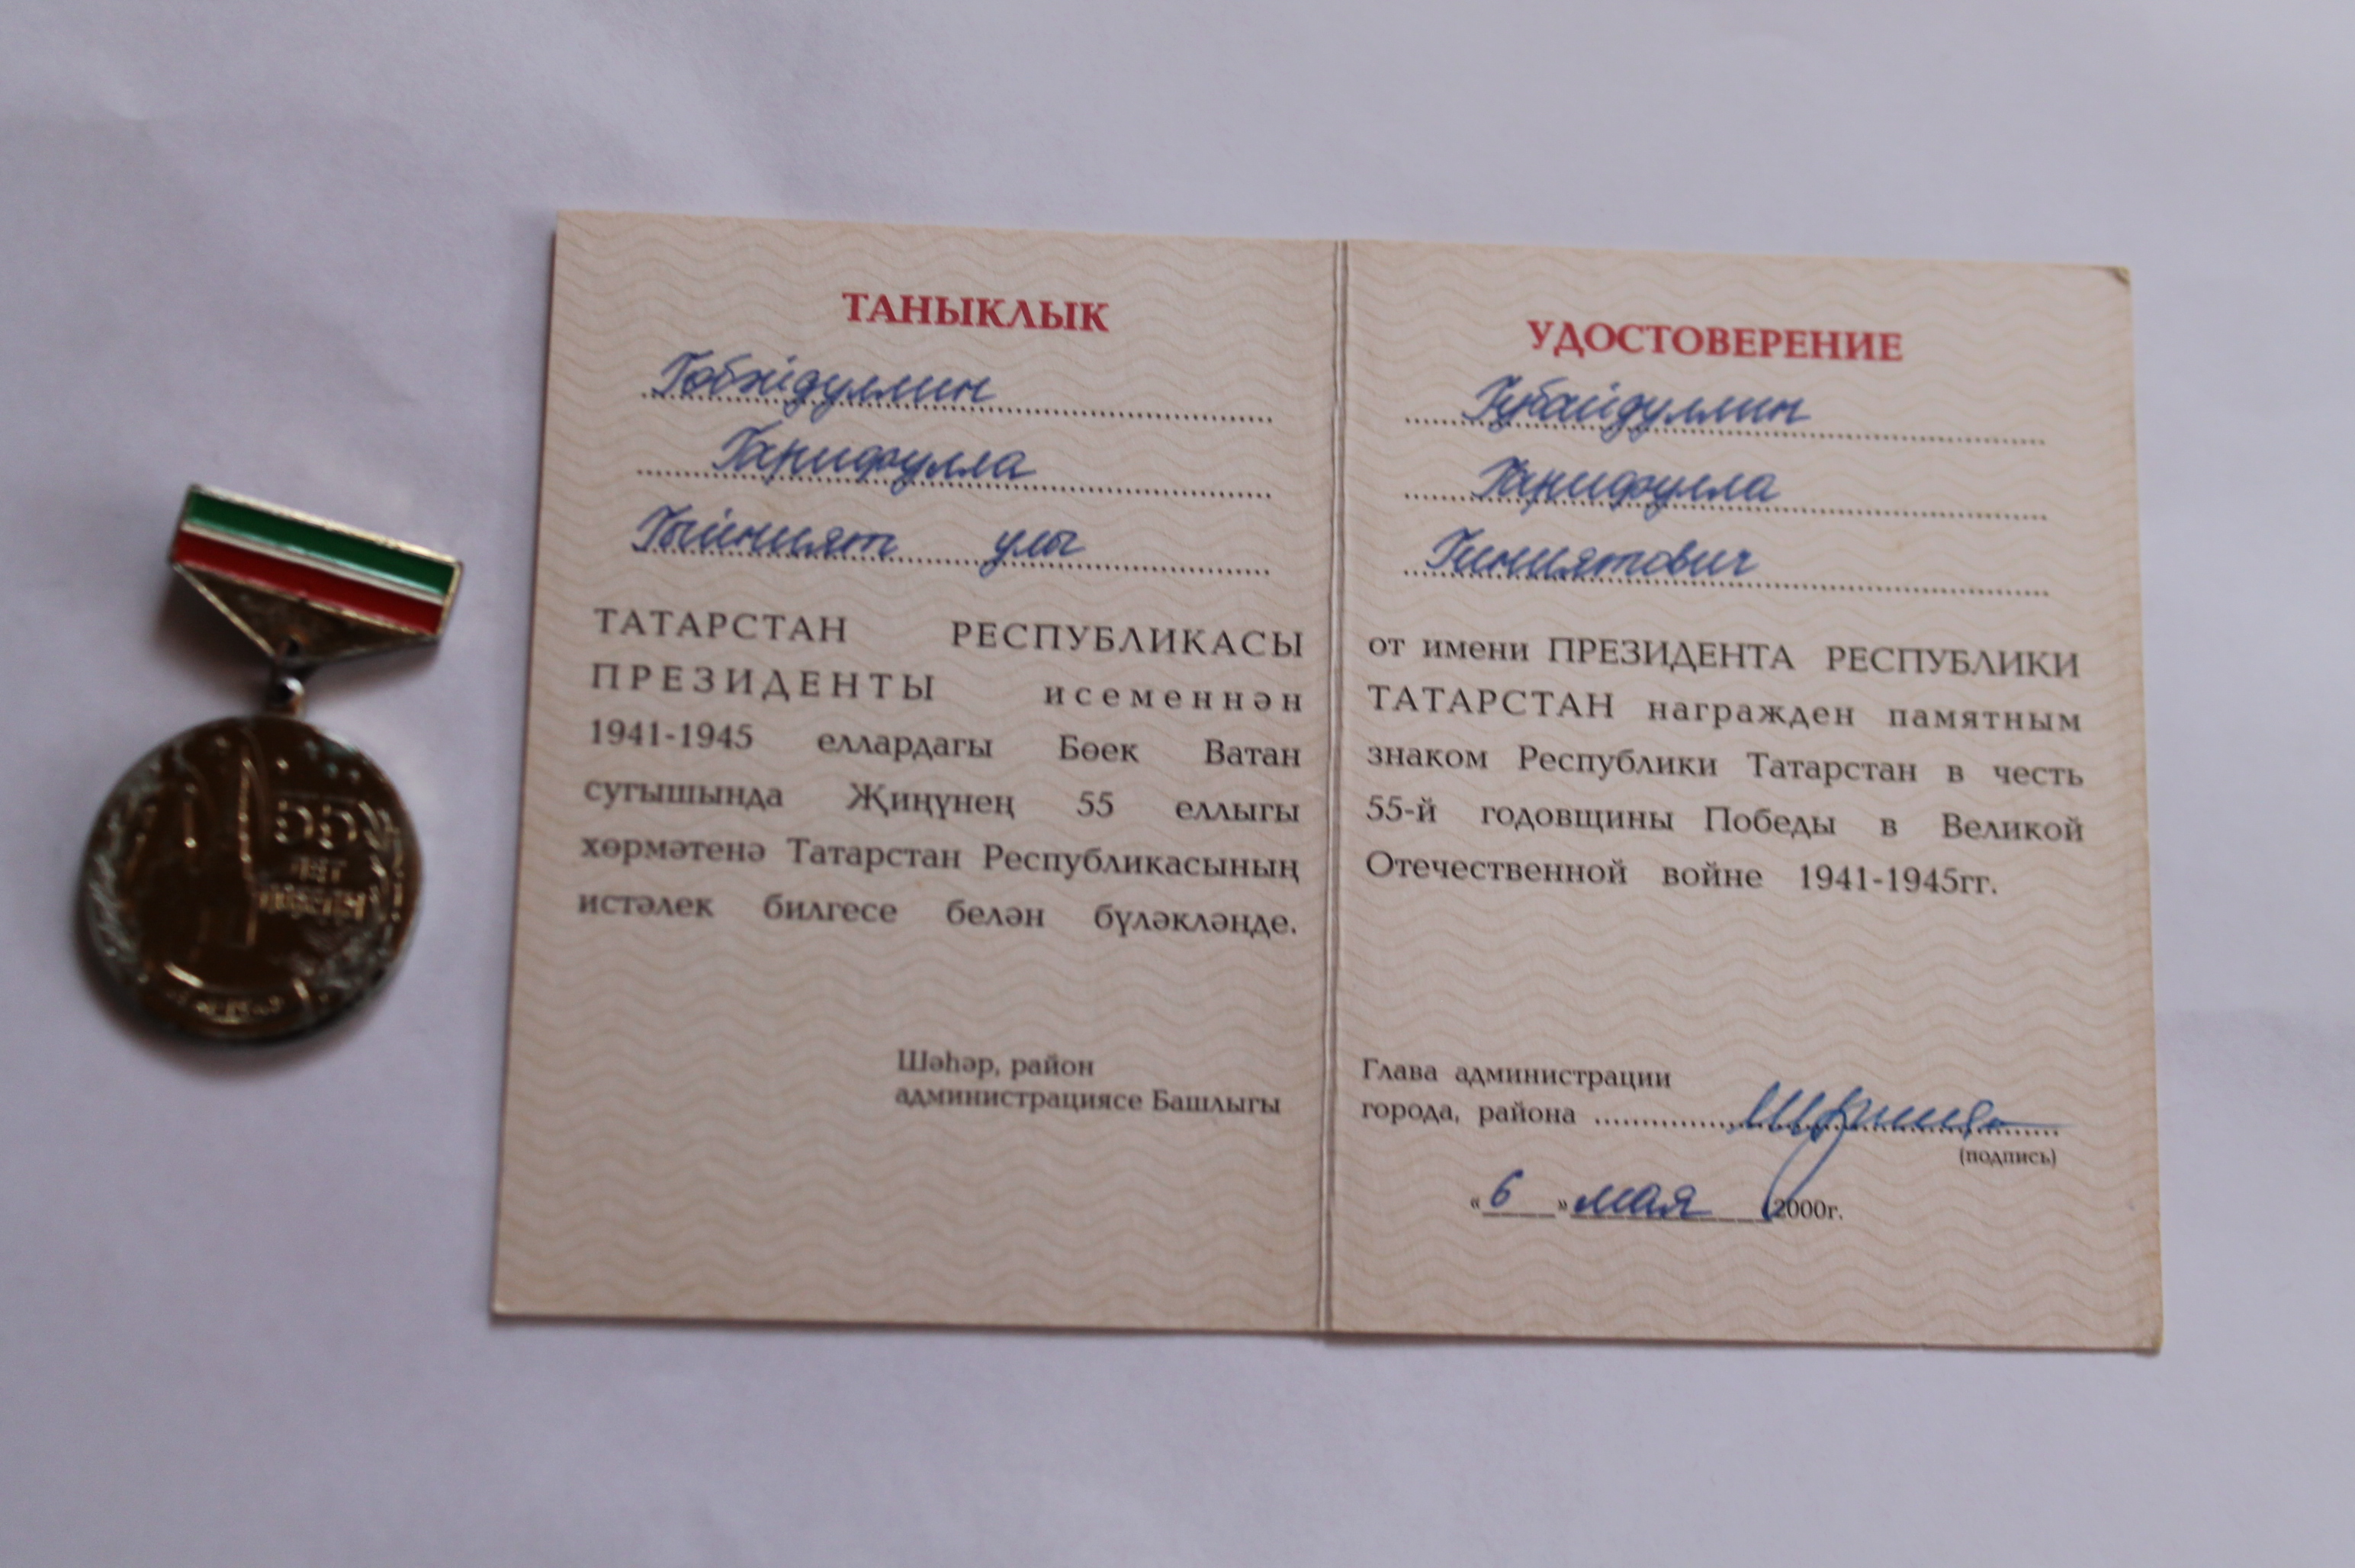 55
ЛЕТ
ПОБЕДЫ
ТАНЫКЛЫК
Гобәйдуллин
Гарифулла
Гыйният улы
ТАТАРСТАН РЕСПУБЛИКАСЫ
ПРЕЗИДЕНТЫ исеменнән
1941-1945 еллардагы Бөек Ватан
сугышында Җиңүнең 55 еллыгы
хөрмәтенә Татарстан Республикасының
истәлек билгесе белән бүләкләнде.
Шәһәр, район
администрациясе Башлыгы
УДОСТОВЕРЕНИЕ
Губайдуллин
Гарифулла
Гиниятович
от имени ПРЕЗИДЕНТА РЕСПУБЛИКИ
ТАТАРСТАН награжден памятным
знаком Республики Татарстан в честь
55-й годовщины Победы в Великой
Отечественной войне 1941-1945гг.
Глава администрации
города, района
(подпись)
«6» мая 2000г.